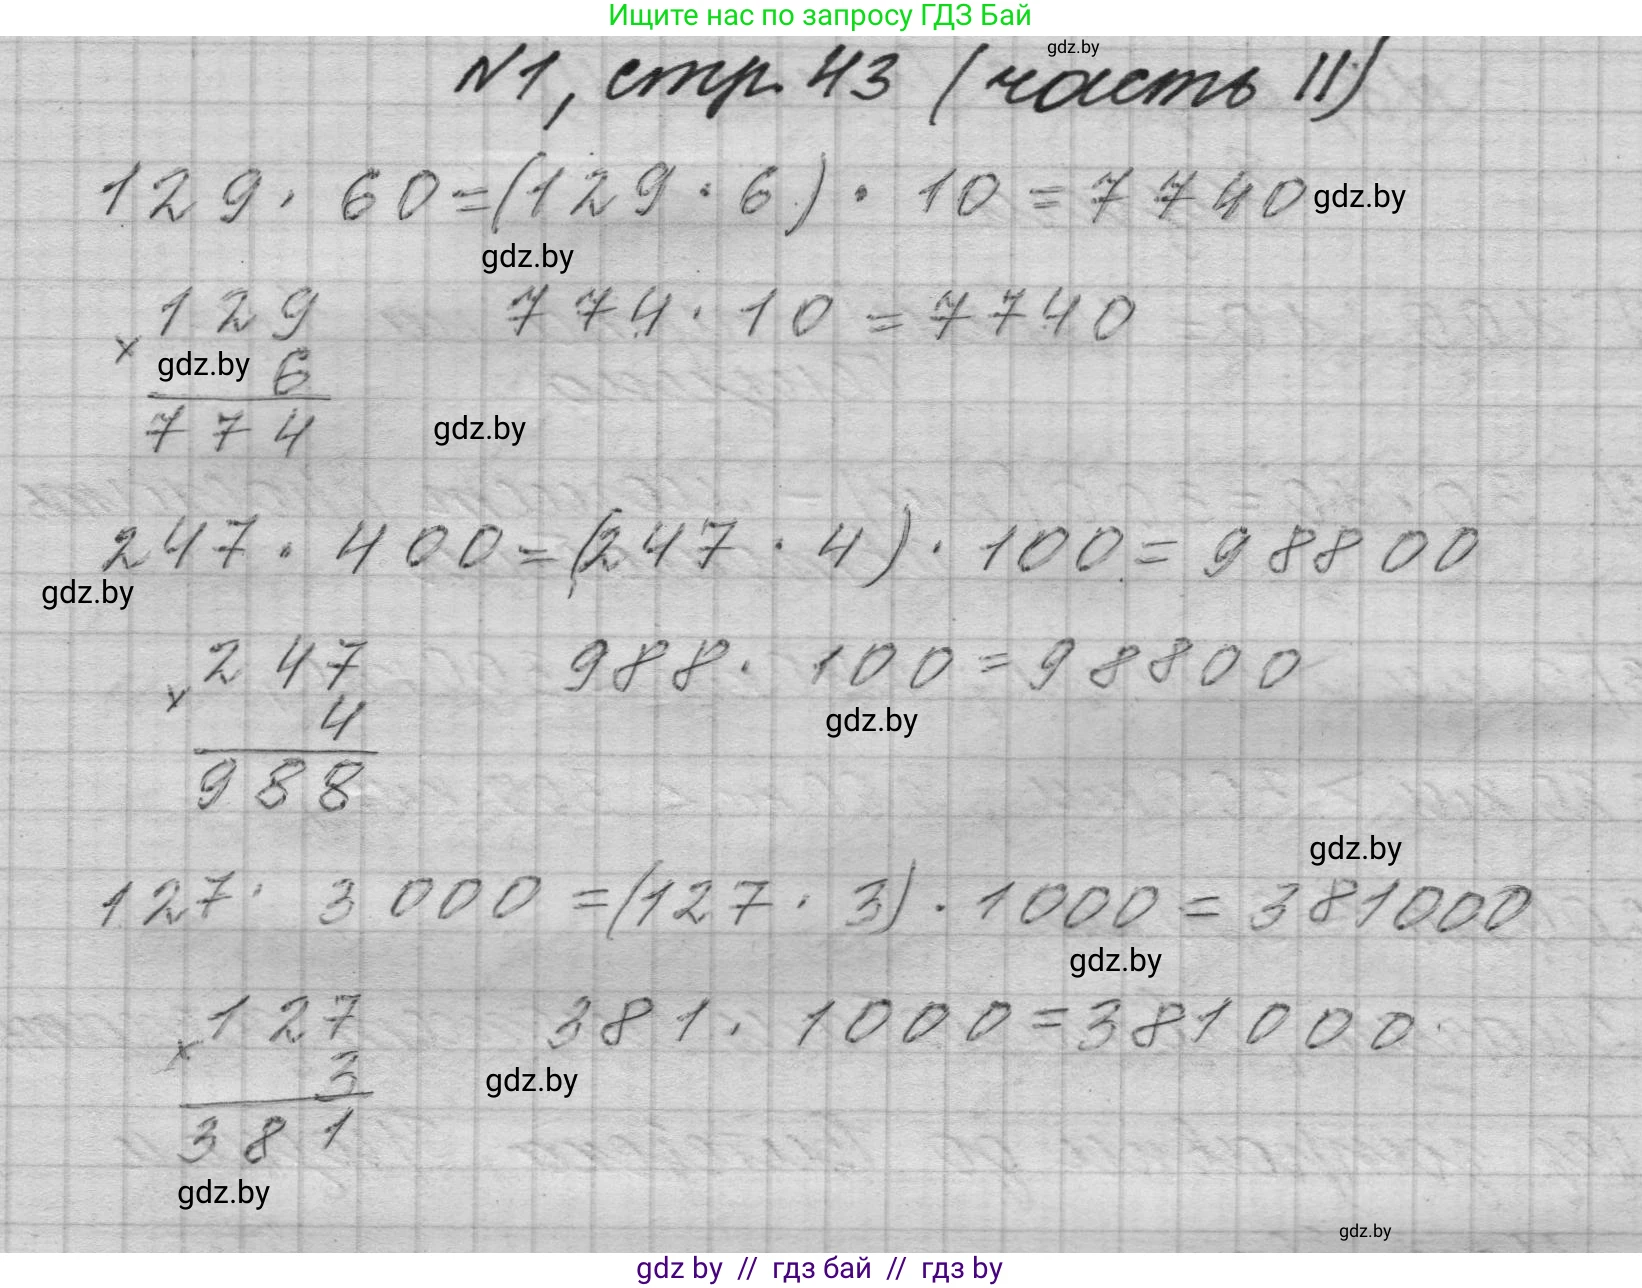 Ищите нас по запросу ГДЗ Бай
gdz.by
№1, стр. 43 (часть II)
129 · 60 = (129 · 6) · 10 = 7740 gdz.by
gdz.by
129 774 · 10 = 7740
× gdz.by 6
774 gdz.by
247 · 400 = (247 · 4) · 100 = 98800
gdz.by
247 988 · 100 = 98800
× 4 gdz.by
988
gdz.by
127 · 3000 = (127 · 3) · 1000 = 381000
gdz.by
127 381 · 1000 = 381000
× 3 gdz.by
381
gdz.by
gdz.by
gdz by // гдз бай // гдз by